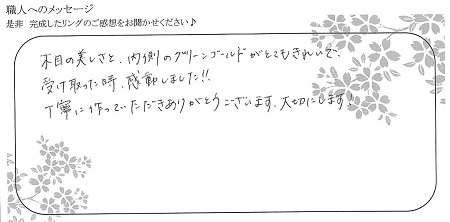 職人へのメッセージ
是非 完成したリングのご感想をお聞かせください♪
木目の美しさと、内側のグリーンゴールドがとてもきれいで、
受け取った時、感動しました!!
丁寧に作っていただきありがとうございます。大切にします!